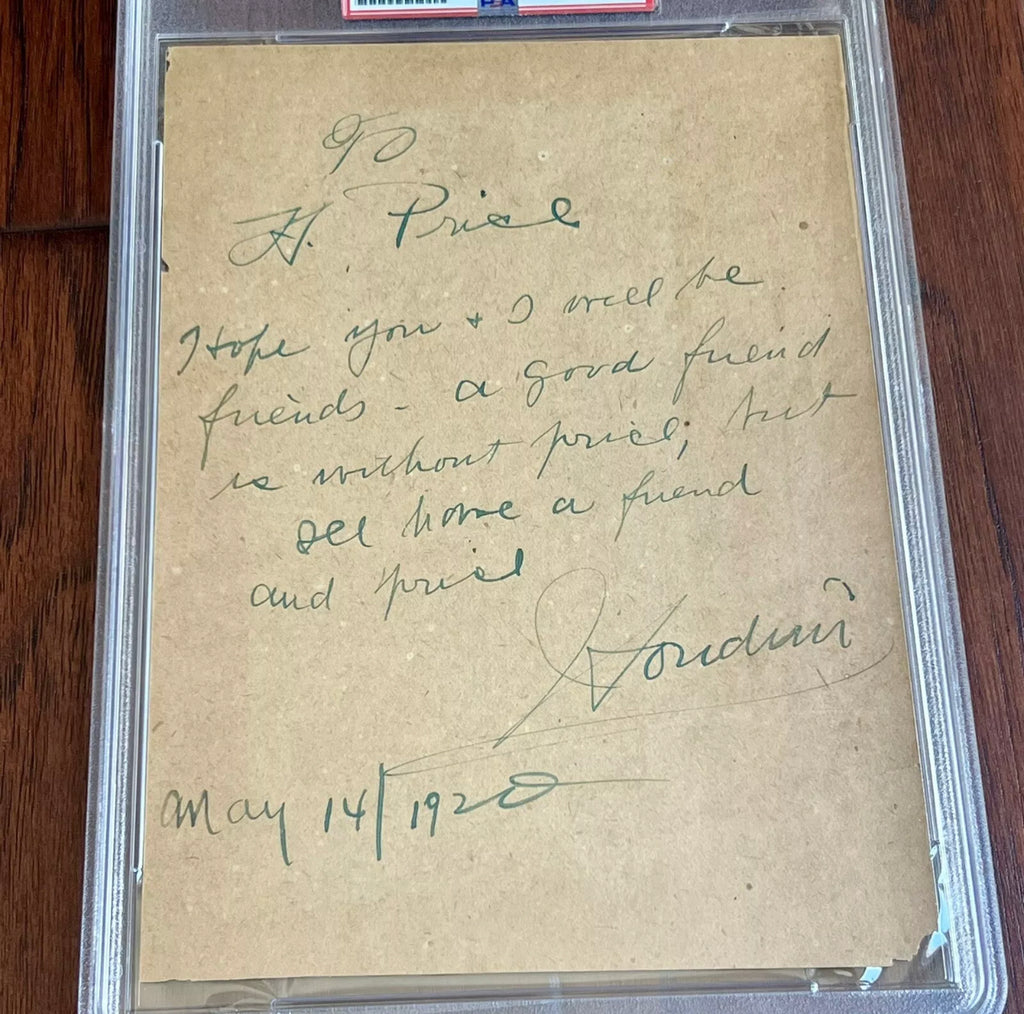 PSA
To
H. Price
Hope you + I will be
friends - a good friend
is without price; but
all have a friend
and price
Houdini
May 14/1920